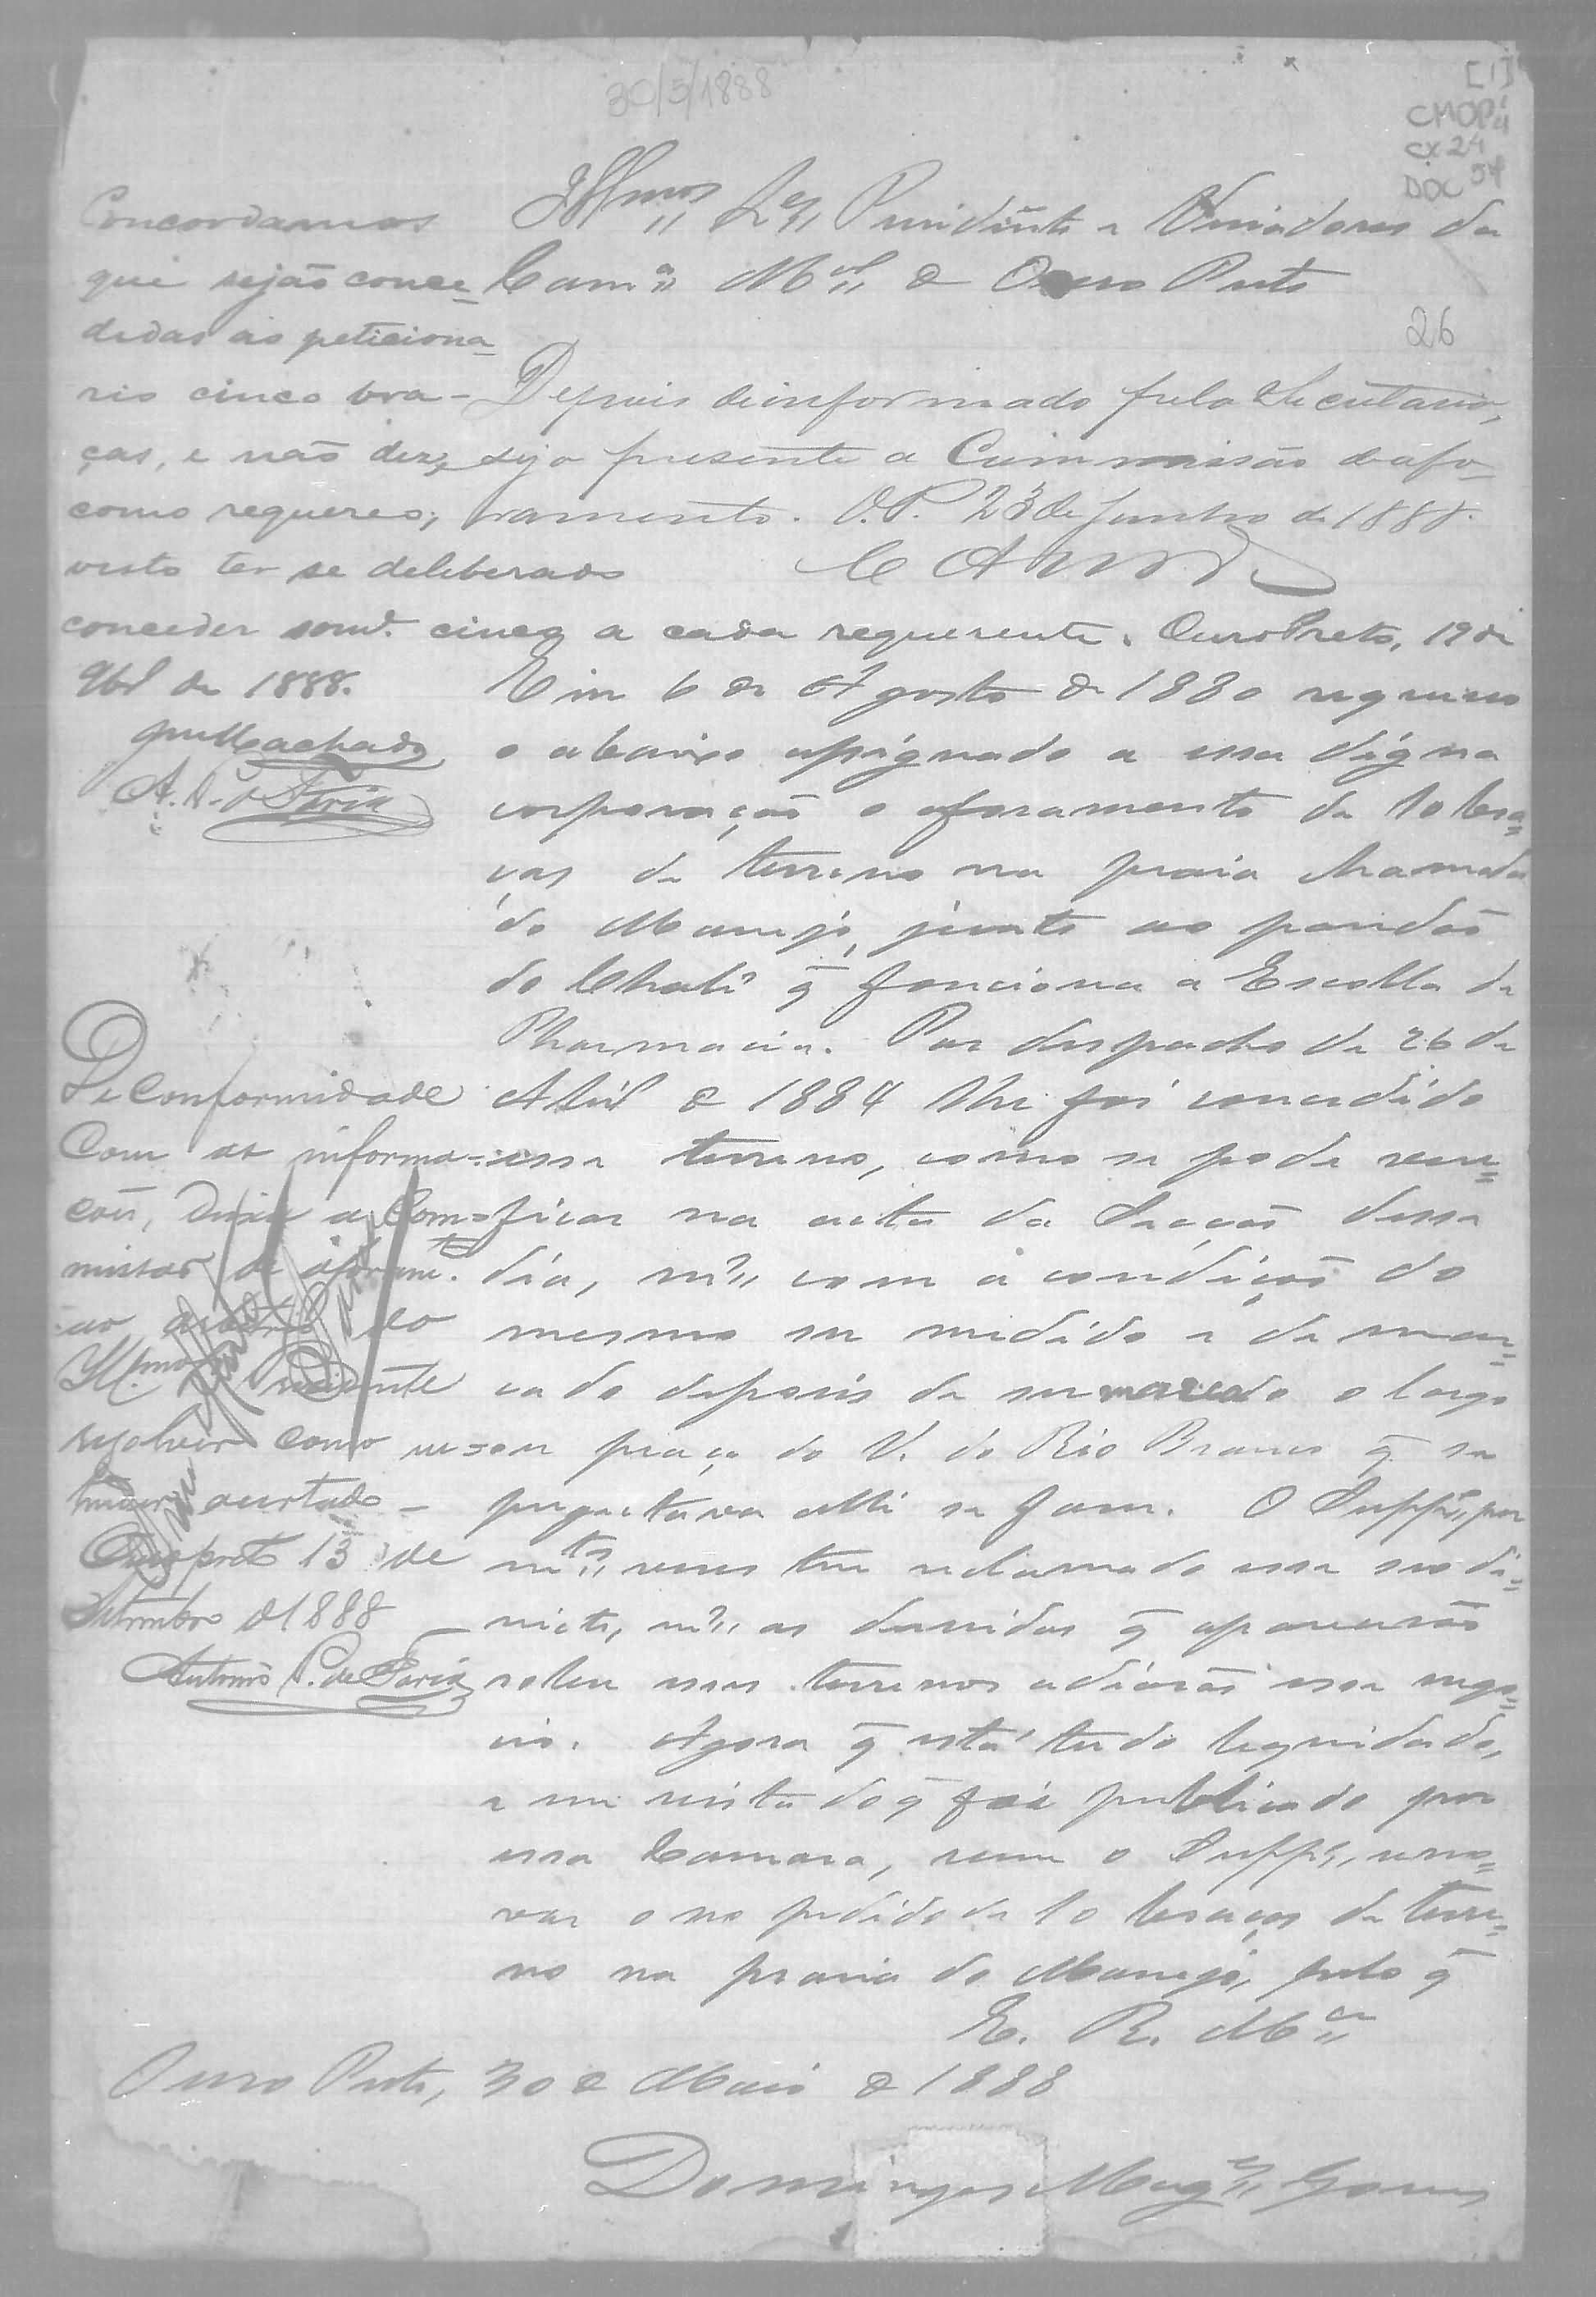 30/5/1888
[1]
CMOP
CX 24
DOC 54
26
Illmos Srs Presidente e Veriadores da
Camª Mal de Ouro Preto
Depois de informado pelo Secretario,
seja presente a Commissão de afo-
ramento. O. P. 23 de Junho de 1888.
Concordamos
que sejão conce-
didas ao peticiona-
rio cinco bra-
ças, e não dez,
como requereo,
visto ter se deliberado
conceder somte. cinco a cada requerente. Ouro Preto, 19 de
9bro de 1888.
Machado
A. P. de Faria
Em 6 de Agosto de 1880 requereo
o abaixo assignado a essa digna
corporação o aforamento de 10 bra=
ças de terreno na praia chamada
do Manejo, junto ao paredão
do Chalé q̃ fonciona a Escolla de
Pharmacia. Por despacho de 26 de
Abril de 1884 lhe foi concedido
esse terreno, como se pode veri=
ficar na acta da Secção desse
dia, ms com a condição do
mesmo ser medido e de mar=
cado depois de ser marcado o largo
ou praça do V. do Rio Branco q̃ se
pregectava alli se faser. O Suppe por
mtas veses tem reclamado esse seo di=
reito, ms as duvidas q̃ aparecerão
sobre esses terrenos adiarão esse nego=
cio. Agora q̃ está tudo liquidado,
e em vista do q̃ foi publicado por
essa Camara, vem o Suppe reno=
var o seo pedido de 10 braças de terre=
no na praia do Manejo, pelo q̃
E. R. Mce
Ouro Preto, 30 de Maio de 1888
Domingos Mages Gomes
De Conformidade
Com as informa-
coes, deixa a Com=
missão de aforamto.
ao do
Illmo Presidente
resolver como
acertado
Ouro preto 13 de
Setembro de 1888
Antonio P. de Faria